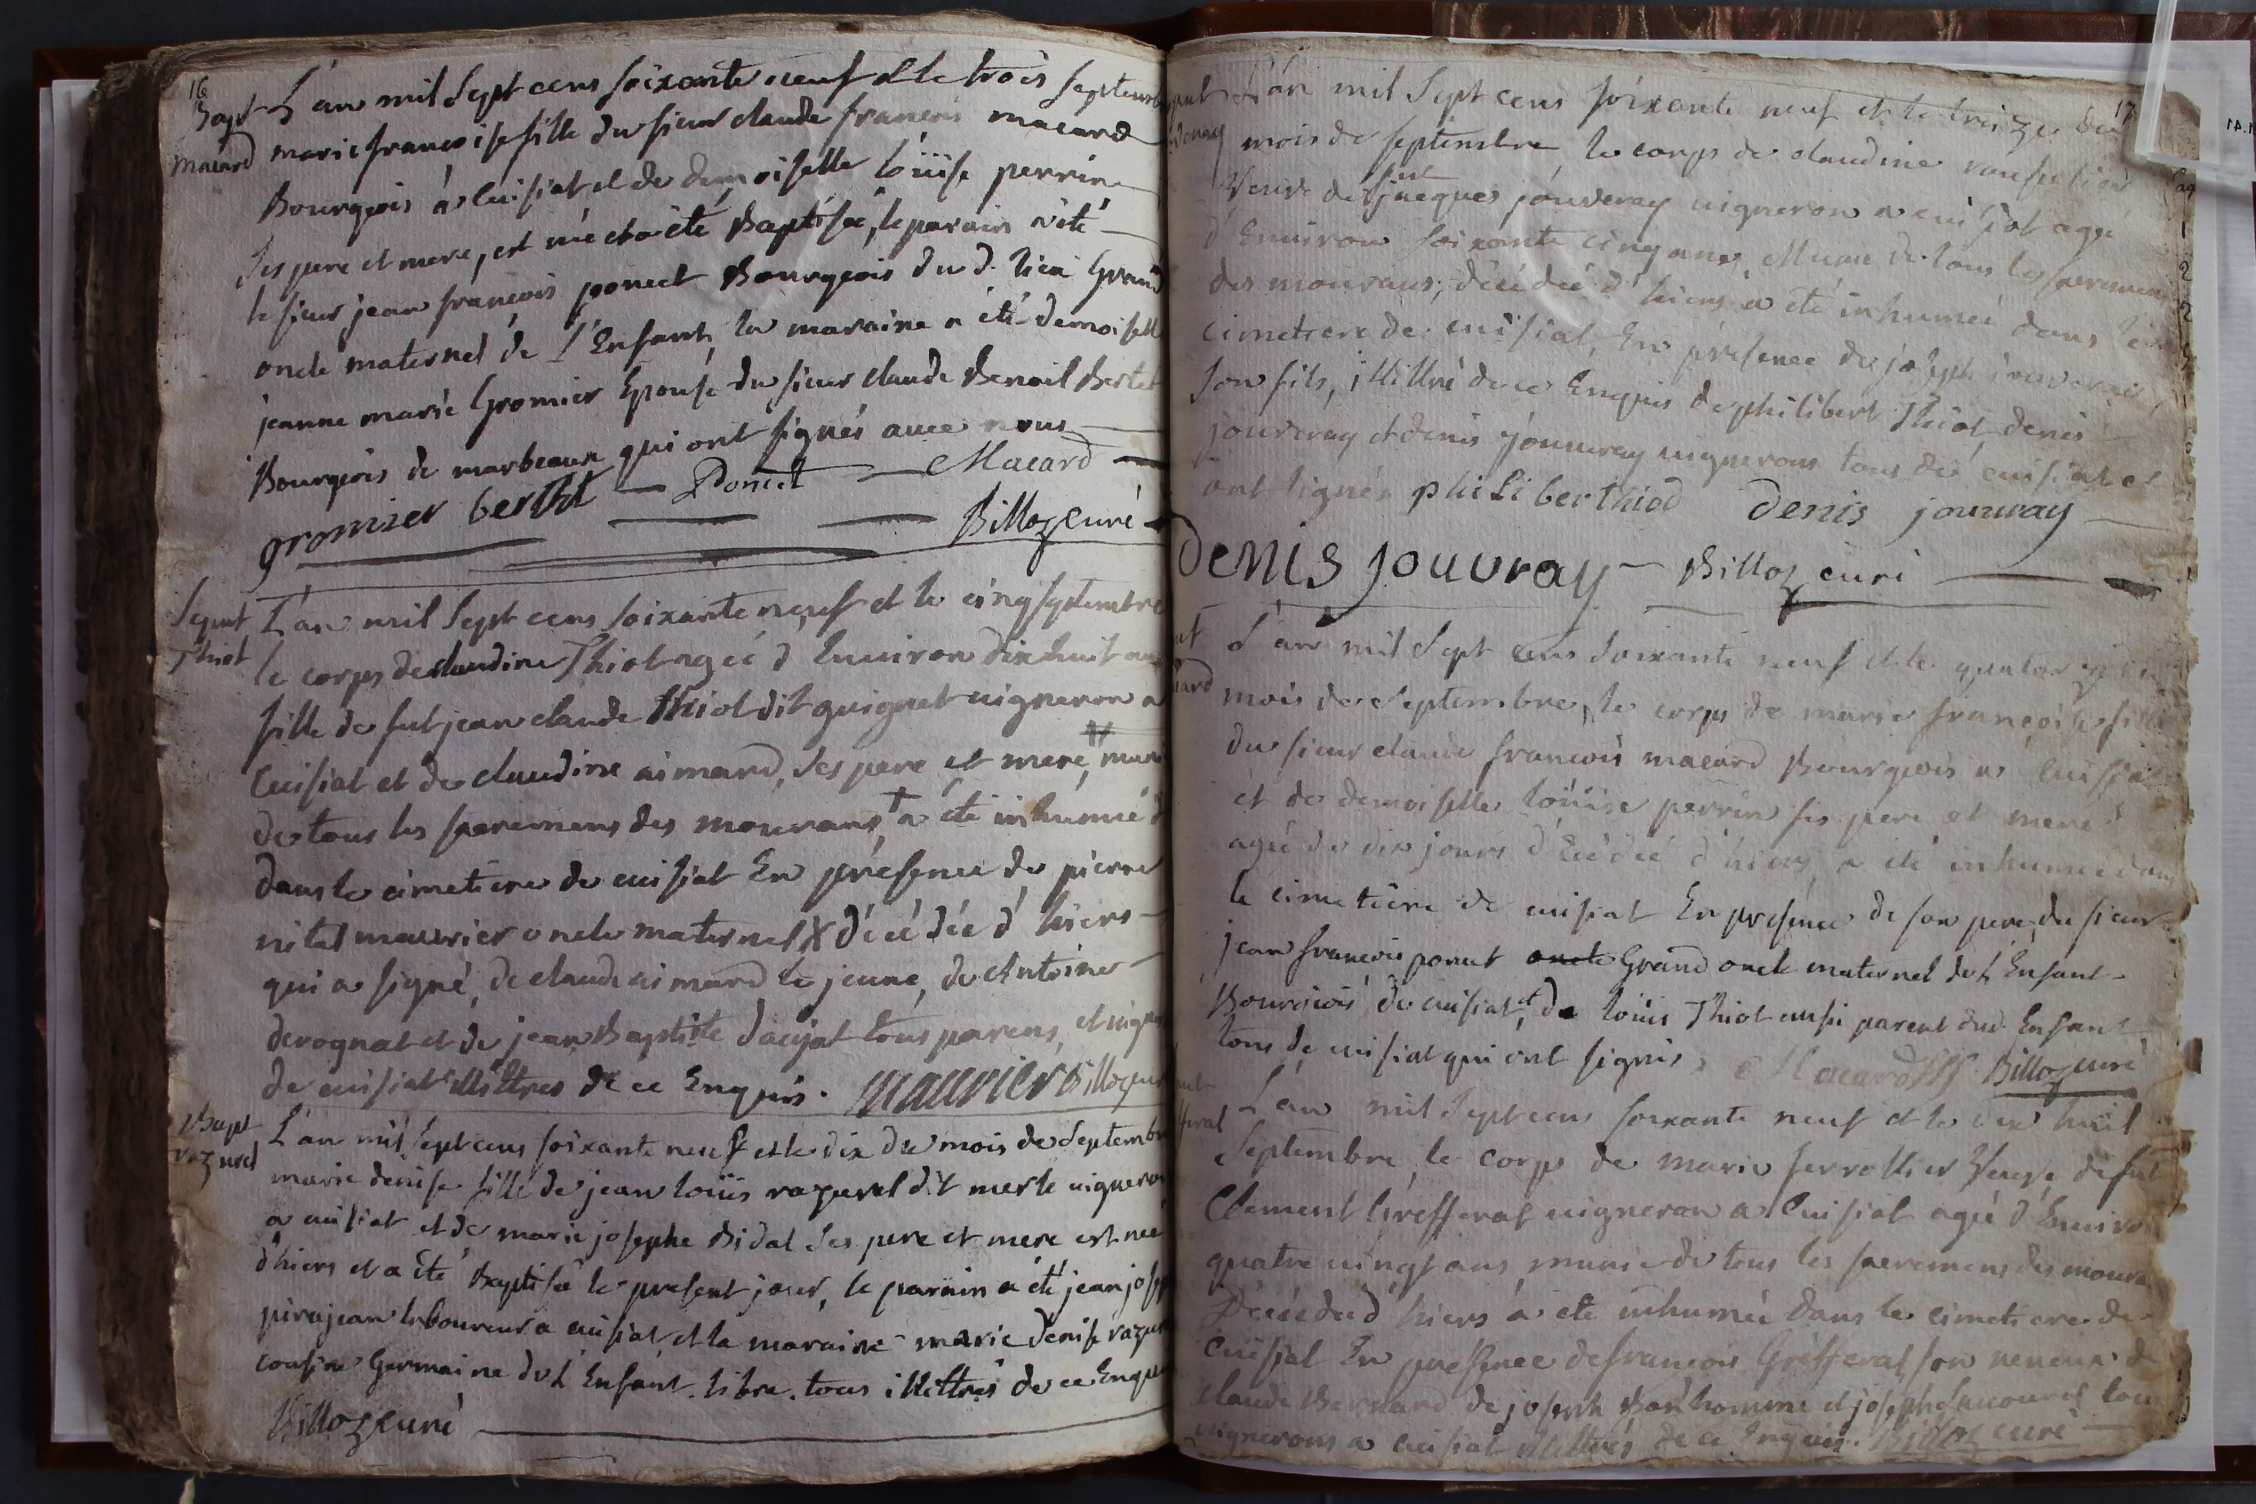 16
Bapt
macard
L'an mil Sept cens soixante neuf et le trois septemb
marie francoise fille du sieur claude francois macard
Bourgeois a cuisiat et de demoiselle loüise perrin
ses pere et mere, est née et a été Baptisée, le parain a été
le sieur jean francois poncet Bourgeois du d. lieu Grand
oncle maternel de l'Enfant, la maraine a été demoiselle
jeanne marie Gromier Epouse du sieur claude Benoit Bertet
Bourgeois de marbeaux qui ont signés avec nous
gromier bertht Poncet Macard
Billoz curé
Sepult
Thiot
L'an mil Sept cens soixante neuf et le cinq septembre
le corps de claudine Thiot agée d'Environ dix huit ans
fille de fut jean claude thiot dit guignet vigneron a
Cuisiat et de claudine aimard, ses pere et mere, munie
de tous les sacremens des mourans, a été inhumée
dans le cimetiere de cuisiat En présence de pierre
vital maurier oncle maternel X décédée d'hiers
qui a signé, de claude aimard le jeune, de Antoine
derognat et de jean Baptiste dacyat tous parens, et vigne
de cuisiat illittres de ce Enquis. maurier Billoz cur
Bapt
razurel
L'an mil Sept cens soixante neuf et le dix du mois de Septemb
marie denise fille de jean loüis razurel dit merle vigneron
a cuisiat et de marie josephe Bidal ses pere et mere est née
d'hiers et a été Baptisée le présent jour, le parain a été jean josep
pirajean laboureur a cuisiat, et la maraine marie denise razur
cousine Germaine de l'Enfant. libre. tous illittrés de ce Enqu
Billoz curé
17
L'an mil Sept cens soixante neuf et le treize du
mois de septembre le corps de claudine
Veuve de fut jacques jouvray vigneron a cuisiat agée
d'Environ soixante cinq ans, Munie de tous les sacremens
des mourans, décédée d'hiers a été inhumée dans le
cimetiere de cuisiat, En présence de joseph jouvray
son fils, illittré de ce Enquis de philibert Thiot, denis
jouvray et denis jouvray vignerons tous de cuisiat et
ont signés philiber thiod denis jouvray
denis jouvray Billoz curé
L'an mil Sept cens soixante neuf et le quatorze du
mois de Septembre, le corps de marie francoise fille
du sieur claude francois macard Bourgeois a cuisiat
et de demoiselle loüise perrin ses pere et mere
agée de dix jours décédée d'hiers, a été inhumée dans
le cimetiere de cuisiat En présence de son pere, du sieur
jean francois poncet oncle Grand oncle maternel de l'Enfant
Bourgeois de cuisiat, et de loüis Thiot aussi parent dud. Enfant
tous de cuisiat qui ont signés, Macard Billoz curé
L'an mil Sept cens soixante neuf et le dix huit
Septembre le corps de marie ferrollier Veuve de fut
Clement Grefferat vigneron a Cuisiat agée d'Environ
quatre vingt ans, munie de tous les sacremens des moura
Décédée d'hiers a été inhumée dans le cimetiere de
Cuisiat En présence de francois Grefferat son neveux de
claude Bernard de joseph Bonhomme et joseph tous
vignerons a cuisiat illittrés de ce Enquis. Billoz curé